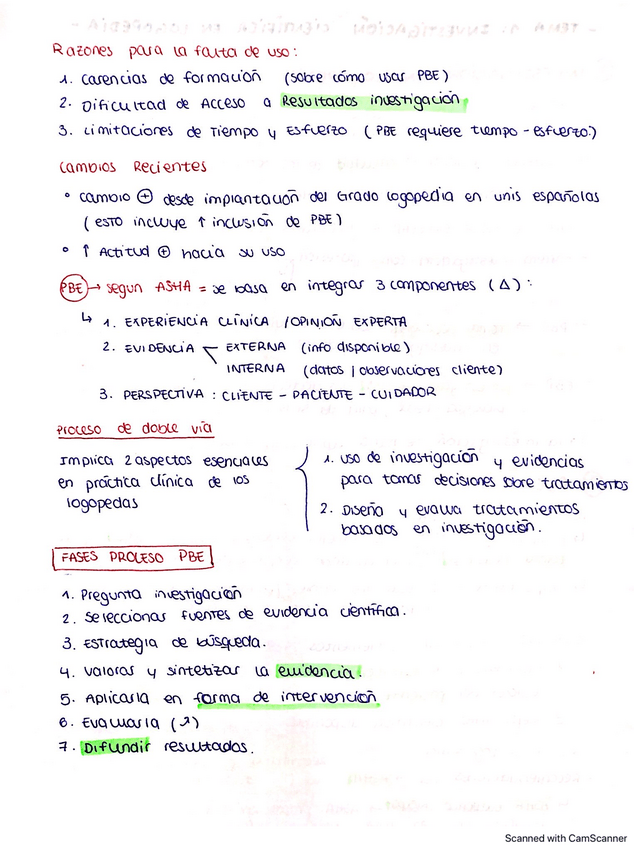 Razones para la falta de uso:
1. carencias de formación (sobre cómo usar PBE)
2. Dificultad de Acceso a Resultados investigación
3. Limitaciones de Tiempo y Esfuerzo (PBE requiere tiempo - esfuerzo)
Cambios Recientes
• cambio ⊕ desde implantación del Grado logopedia en unis españolas
(esto incluye ↑ inclusión de PBE)
• ↑ Actitud ⊕ hacia su uso
PBE → segun ASHA = se basa en integrar 3 componentes (Δ):
↳ 1. EXPERIENCIA CLÍNICA / OPINIÓN EXPERTA
2. EVIDENCIA < EXTERNA (info disponible)
INTERNA (datos / observaciones cliente)
3. PERSPECTIVA: CLIENTE - PACIENTE - CUIDADOR
Proceso de doble vía
Implica 2 aspectos esenciales
en práctica clínica de los
logopedas
1. uso de investigación y evidencias
para tomar decisiones sobre tratamientos
2. Diseño y evalua tratamientos
basados en investigación.
FASES PROCESO PBE
1. Pregunta investigación
2. Seleccionar fuentes de evidencia científica.
3. Estrategia de búsqueda.
4. valorar y sintetizar la evidencia.
5. Aplicarla en forma de intervención.
6. Evaluarla
7. Difundir resultados.
Scanned with CamScanner